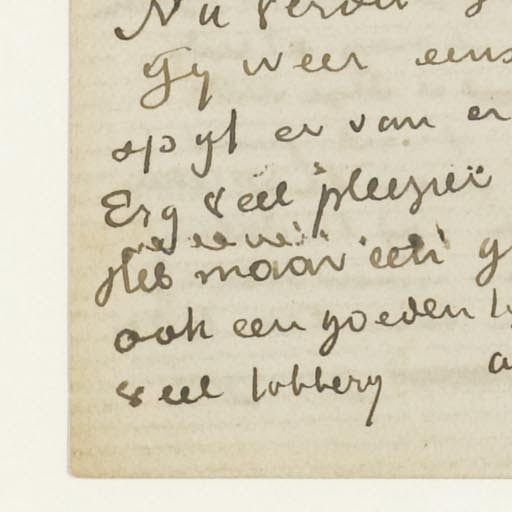 Nu
Gy weer eens
spyt er van en
Erg veel pleizier
Heb maar een g
ook een goeden
veel lobbery a